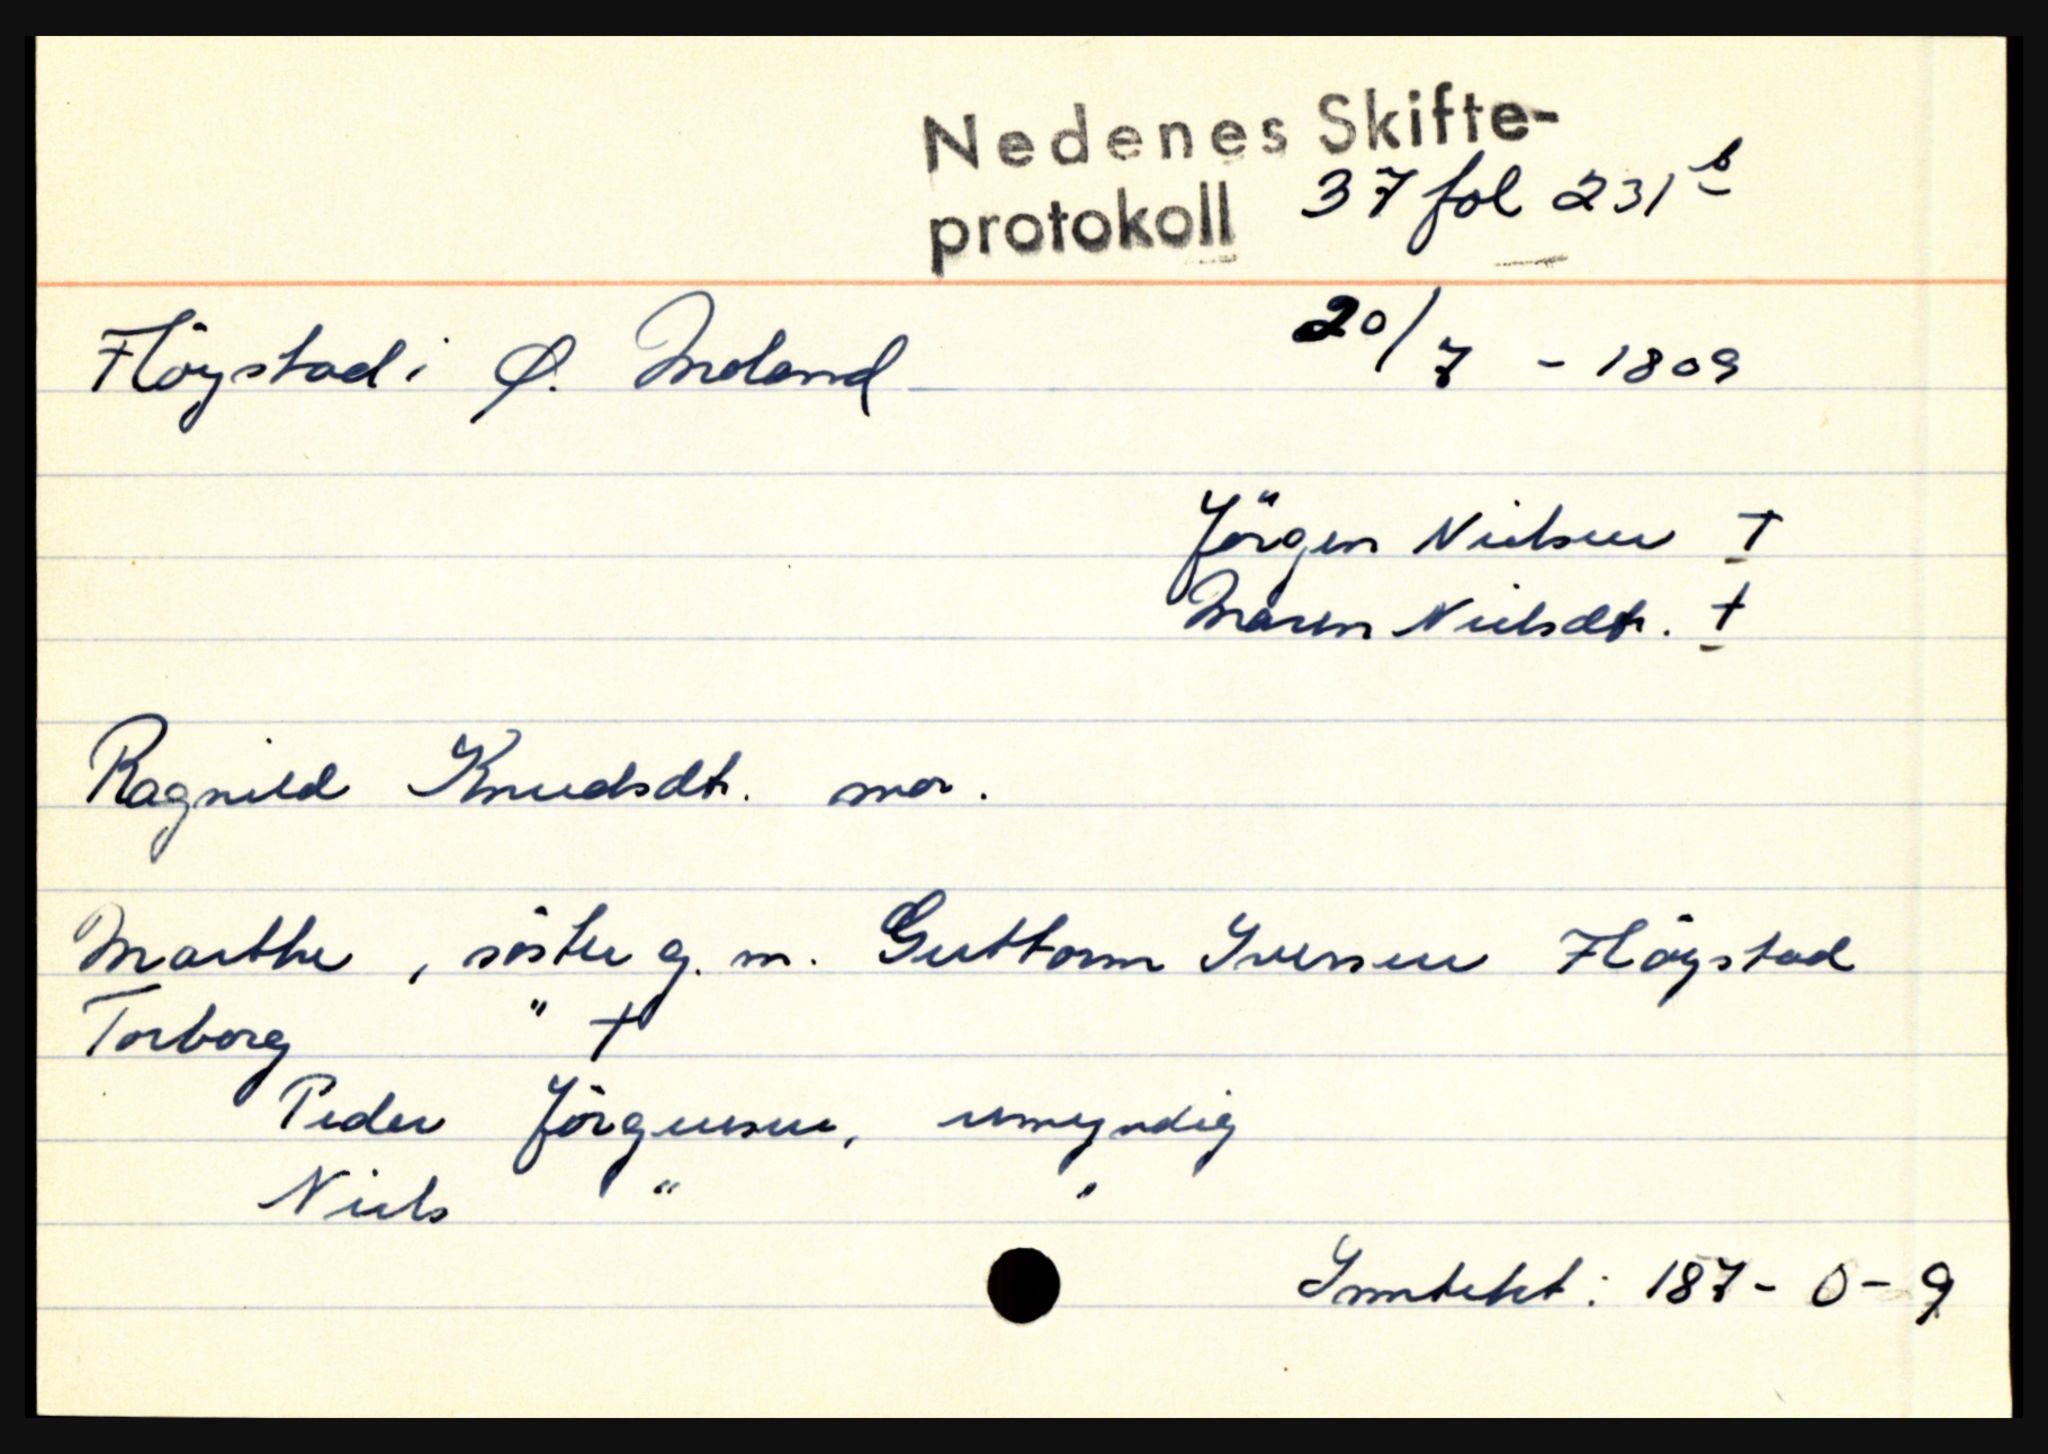 Nedenes Skifte-
protokoll 37 fol 231 b
Flöystad i Ø. Moland 20/7 - 1809
Jörgen Nielsen †
Maren Nielsdtr. †
Ragnild Knudsdtr. mor.
Marthe, söster g. m. Guttorm Iversen Flöystad
Torborg " †
Peder Jörgensen, umyndig
Niels " "
Inntekt: 187 - 0 - 9